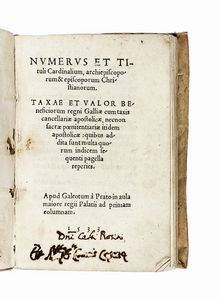 NVMERVS ET TI-
tuli Cardinalium, archiepiscopo-
rum & episcoporum Chri-
stianorum.
TAXAE ET VALOR BE-
neficiorum regni Galliæ cum taxis
cancellariæ apostolicæ, necnon
sacræ pœnitentiariæ itidem
apostolicæ: quibus ad-
dita sunt multa quo-
rum indicem se-
quenti pagella
reperies.
Apud Galeotum à Prato in aula
maiore regii Palatii ad primam
columnam.